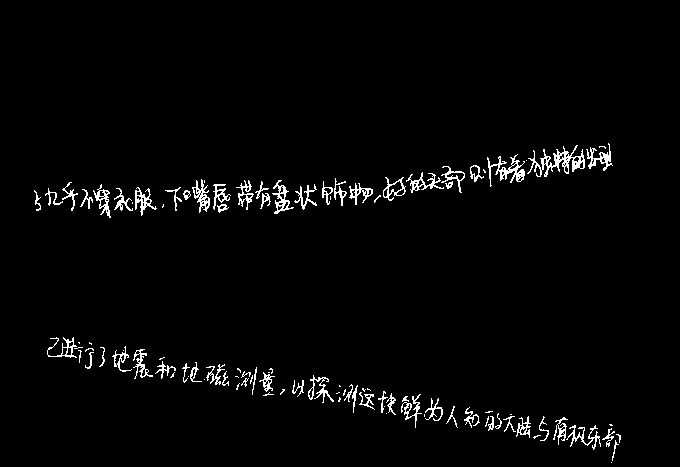 乎不穿衣服，下嘴唇带有盘状饰物，她的头部则有着独特的发型
已进行了地震和地磁测量，以探测这块鲜为人知的大陆与南极东部